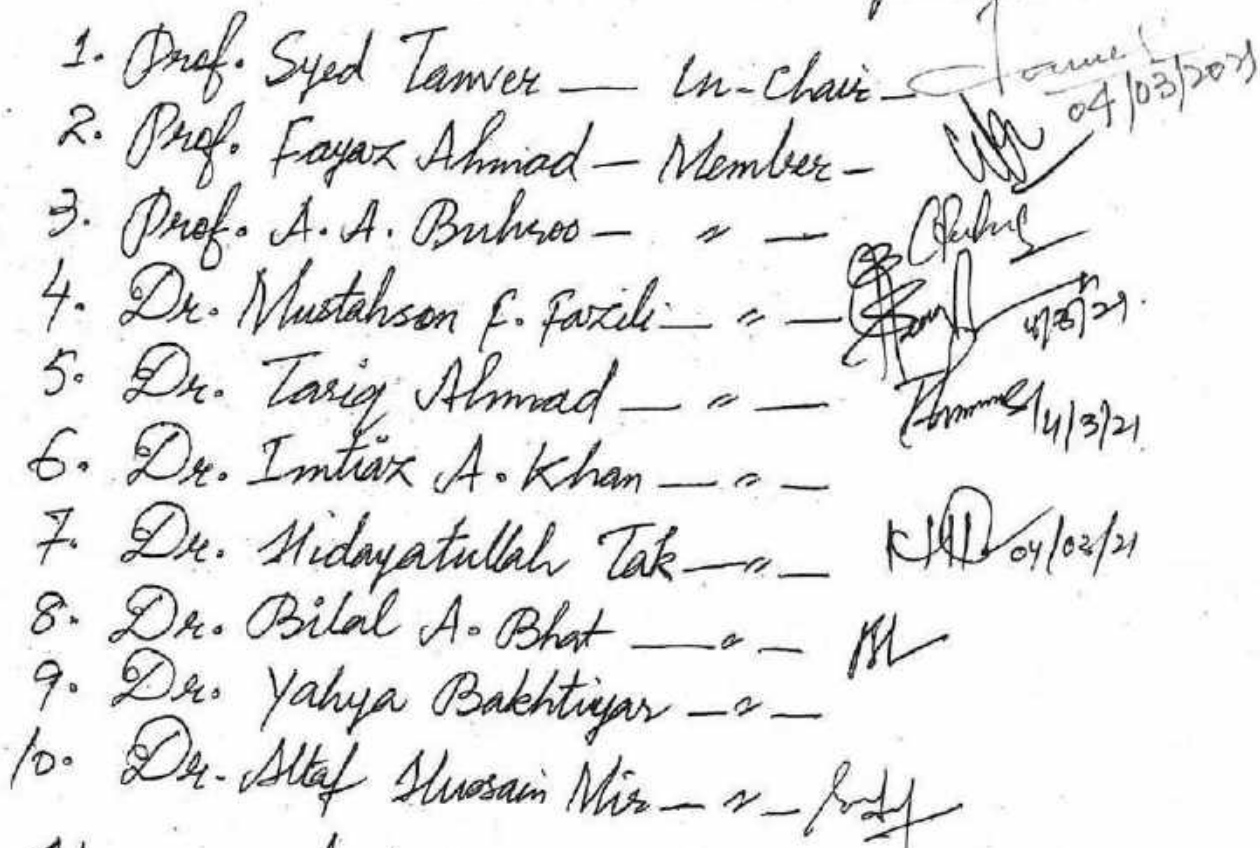 1. Prof. Syed Tanver — In-Chair — 04/03/2021
2. Prof. Fayaz Ahmad — Member —
3. Prof. A. A. Buhroo — " —
4. Dr. Mustahson F. Fazili — " — 4/3/21.
5. Dr. Tariq Ahmad — " — 4/3/21
6. Dr. Imtiaz A. Khan — " —
7. Dr. Hidayatullah Tak — " — 04/03/21
8. Dr. Bilal A. Bhat — " —
9. Dr. Yahya Bakhtiyar — " —
10. Dr. Altaf Hussain Mir — " —